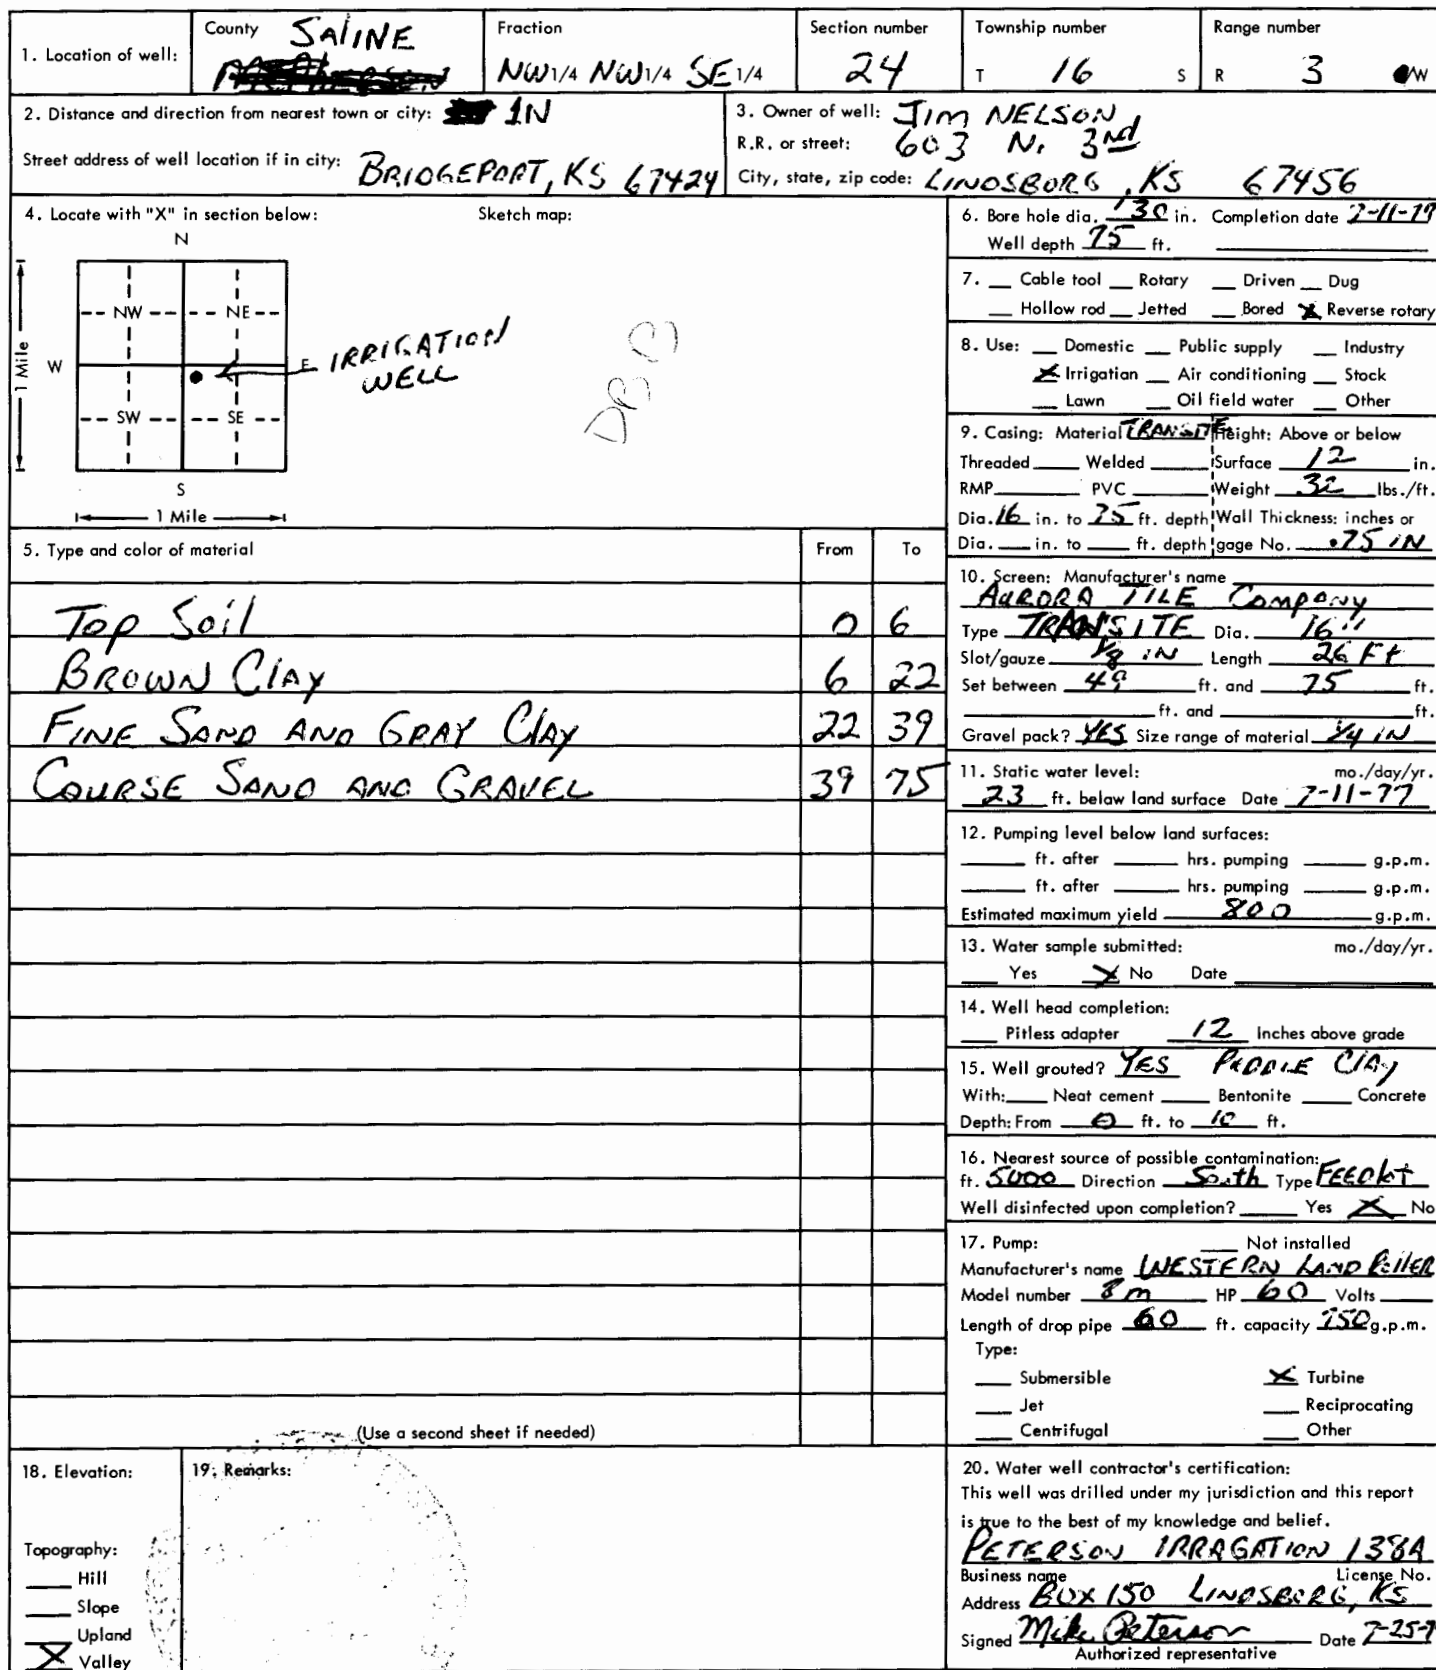 1. Location of well:
County SAlINE
Fraction
NW 1/4 NW 1/4 SE 1/4
Section number
24
Township number
T 16 S
Range number
R 3 W
2. Distance and direction from nearest town or city: 1N
Street address of well location if in city: BRIDGEPORT, KS 67424
3. Owner of well: JIM NELSON
R.R. or street: 603 N. 3rd
City, state, zip code: LINDSBORG, KS 67456
4. Locate with "X" in section below:
Sketch map:
N
NW NE
W E
IRRIGATION
WELL
SW SE
S
1 Mile
1 Mile
5. Type and color of material From To
Top Soil 0 6
BROWN ClAY 6 22
FINE SAND AND GRAY ClAY 22 39
COURSE SAND AND GRAVEL 39 75
(Use a second sheet if needed)
6. Bore hole dia. 30 in. Completion date 7-11-77
Well depth 75 ft.
7. Cable tool Rotary Driven Dug
Hollow rod Jetted Bored X Reverse rotary
8. Use: Domestic Public supply Industry
X Irrigation Air conditioning Stock
Lawn Oil field water Other
9. Casing: Material TRANSITE Height: Above or below
Threaded Welded Surface 12 in.
RMP PVC Weight 32 lbs./ft.
Dia. 16 in. to 75 ft. depth Wall Thickness: inches or
Dia. in. to ft. depth gage No. .75 IN
10. Screen: Manufacturer's name
AURORA TILE COMPANY
Type TRANSITE Dia. 16"
Slot/gauze 1/8 IN Length 26 Ft
Set between 49 ft. and 75 ft.
ft. and ft.
Gravel pack? YES Size range of material 1/4 IN
11. Static water level: mo./day/yr.
23 ft. below land surface Date 7-11-77
12. Pumping level below land surfaces:
ft. after hrs. pumping g.p.m.
ft. after hrs. pumping g.p.m.
Estimated maximum yield 800 g.p.m.
13. Water sample submitted: mo./day/yr.
Yes X No Date
14. Well head completion:
Pitless adapter 12 Inches above grade
15. Well grouted? YES PUDDLE ClAY
With: Neat cement Bentonite Concrete
Depth: From 0 ft. to 10 ft.
16. Nearest source of possible contamination:
ft. 5000 Direction South Type FEEDlot
Well disinfected upon completion? Yes X No
17. Pump: Not installed
Manufacturer's name WESTERN LAND RollER
Model number 8m HP 60 Volts
Length of drop pipe 60 ft. capacity 750 g.p.m.
Type:
Submersible X Turbine
Jet Reciprocating
Centrifugal Other
18. Elevation:
Topography:
Hill
Slope
Upland
X Valley
19. Remarks:
20. Water well contractor's certification:
This well was drilled under my jurisdiction and this report
is true to the best of my knowledge and belief.
PETERSON IRRAGATION 138A
Business name License No.
Address BOX 150 LINDSBORG, KS
Signed Mike Peterson Date 7-25-7
Authorized representative